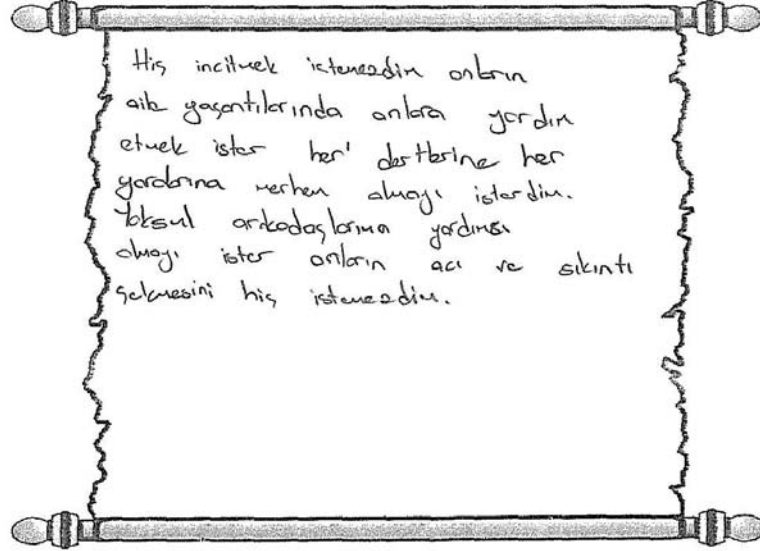 Hiç incitmek istemezdim onların
aile yaşantılarında onlara yardım
etmek ister her dertlerine her
yaralarına merhem olmayı isterdim.
Yoksul arkadaşlarıma yardımcı
olmayı ister onların acı ve sıkıntı
çekmesini hiç istemezdim.